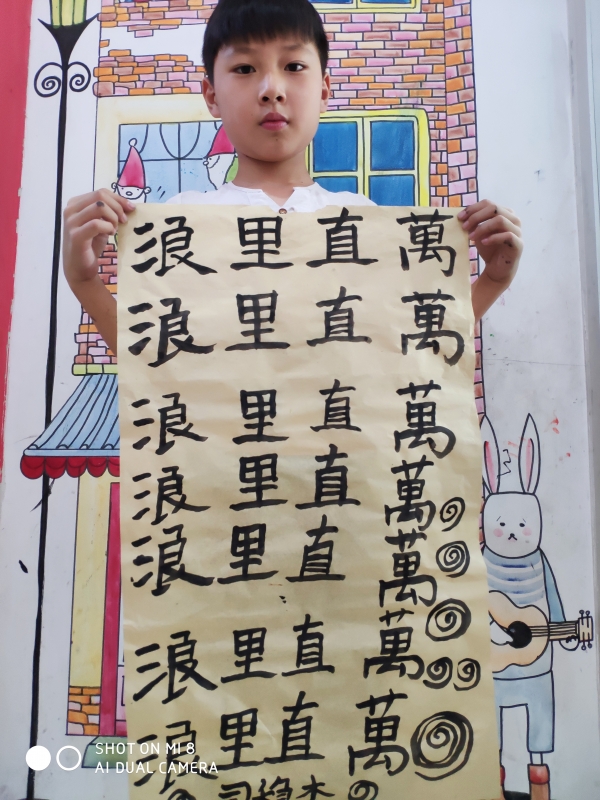 浪里直萬
浪里直萬
浪里直萬
浪里直萬
浪里直萬
浪里直萬
浪里直萬
SHOT ON MI 8
AI DUAL CAMERA